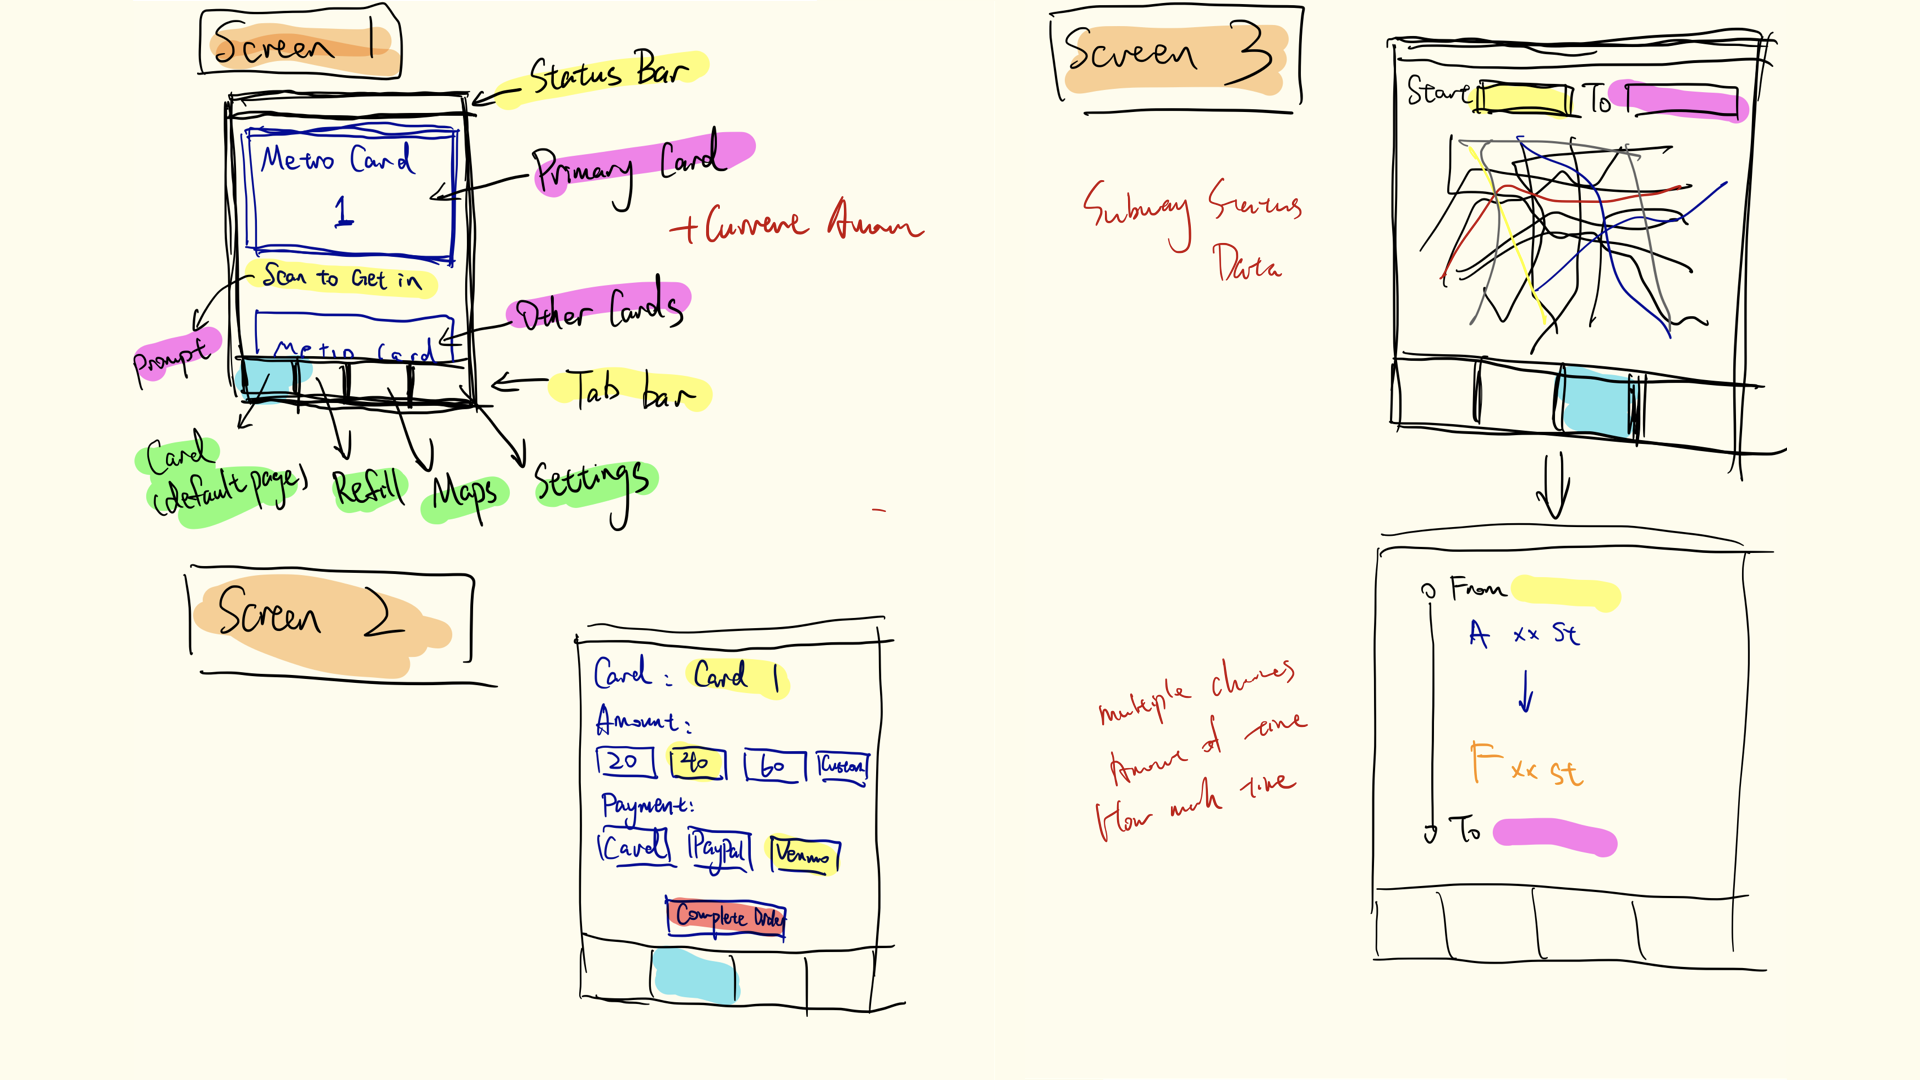 Screen 1
Status Bar
Metro Card
1
Primary Card
+Current Amoun
Scan to Get in
Other Cards
Prompt
Metro Card
Tab bar
Card
(default page)
Refill
Maps
Settings
Screen 2
Card: Card 1
Amount:
20 40 60 Custom
Payment:
Card PayPal Venmo
Complete Order
Screen 3
Start To
Subway Status
Data
From
A xx St
F xx St
To
multiple choices
Amount of time
How much time